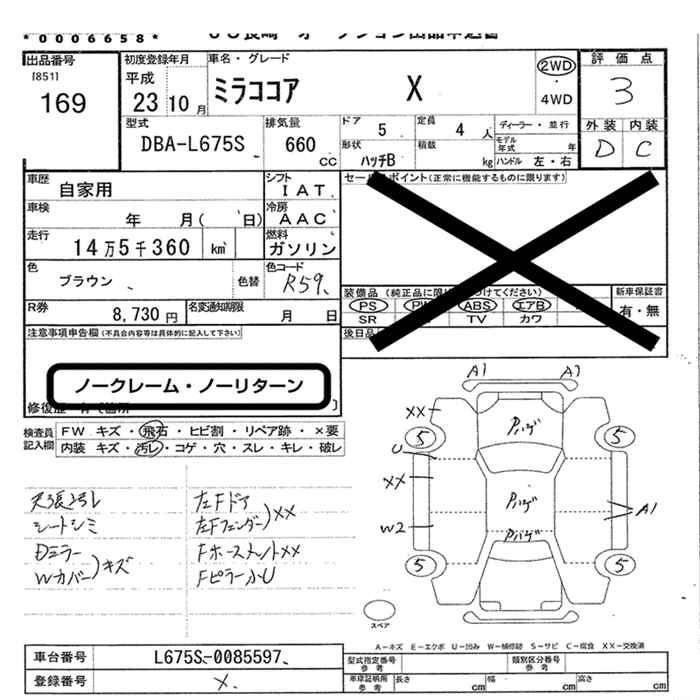 *0006658*
JU長崎 オークション出品申込書
出品番号
[851]
169
初度登録年月
平成
23 10 月
車名・グレード
ミラココア X
2WD
・
4WD
評価点
3
外装 内装
D C
型式
DBA-L675S
排気量
660
CC
ドア
5
定員
4 人
形状
ハッチB
積載
kg
ディーラー・並行
モデル年式 年
ハンドル 左・右
車歴
自家用
シフト
IAT
車検
年 月( 日)
冷房
AAC
走行
14万5千360 km
燃料
ガソリン
色
ブラウン
色替
色コード
R59
R券
8,730 円
名変通知期限
月 日
セールスポイント(正常に機能するものに限ります)
装備品(純正品に限り つけてください)
PS PW ABS エアB
SR TV カワ
新車保証書
有・無
後日品
注意事項申告欄(不具合内容等は具体的に記入して下さい)
ノークレーム・ノーリターン
修復歴 有 で箇所
検査員
記入欄
FW キズ・飛石・ヒビ割・リペア跡・×要
内装 キズ・汚レ・コゲ・穴・スレ・キレ・破レ
天張汚レ
シートシミ
Dミラー
Wカバー)キズ
左Fドア
左Fフェンダー)XX
Fピラー小U
A1 A1
XX
5 5
Pハゲ
U
XX
Pハゲ
A1
W2
Pハゲ
5 5
スペア
A-キズ E-エクボ U-凹み W-補修跡 S-サビ C-腐食 XX-交換済
車台番号
L675S-0085597
登録番号
X
型式指定番号
参考
類別区分番号
参考
車庫証明所
参考
長さ cm 幅 cm 高さ cm